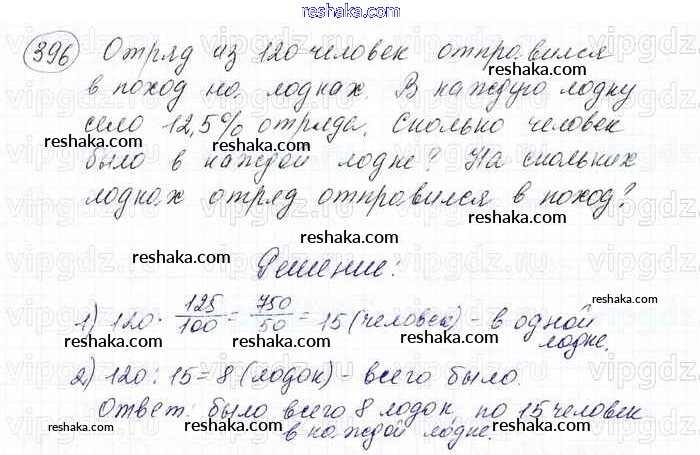 reshaka.com
396 Отряд из 120 человек отправился
reshaka.com
в поход на лодках. В каждую лодку
reshaka.com reshaka.com
село 12,5% отряда. Сколько человек
reshaka.com
было в каждой лодке? На скольких
reshaka.com reshaka.com
лодках отряд отправился в поход?
reshaka.com
Решение:
reshaka.com reshaka.com
1) 120 · 125/100 = 750/50 = 15 (человек) – в одной
лодке.
reshaka.com reshaka.com
2) 120 : 15 = 8 (лодок) – всего было.
reshaka.com
Ответ: было всего 8 лодок, по 15 человек
в каждой лодке.
reshaka.com reshaka.com